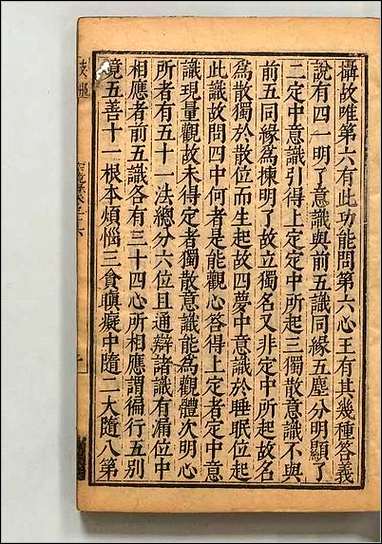 攝故唯第六有此功能問第六心王有其幾種答義
說有四一明了意識與前五識同緣五塵分明顯了
二定中意識引得上定定中所起三獨散意識不與
前五同緣爲棟明了故立獨名又非定中所起故名
爲散獨於散位而生起故四夢中意識於睡眠位起
此識故問四中何者是能觀心答得上定者定中意
識現量觀故未得定者獨散意識能爲觀體次明心
所者有五十一法總分六位且通辯諸識有漏位中
相應者前五識各有三十四心所相應謂徧行五別
境五善十一根本煩惱三貪瞋癡中隨二大隨八第